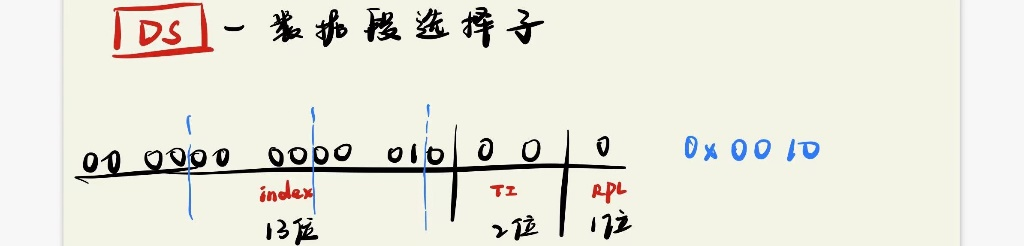 DS - 数据段选择子
00 0000 00 0000 010 0 0 0 0x0010
index TI RPL
13位 2位 1位